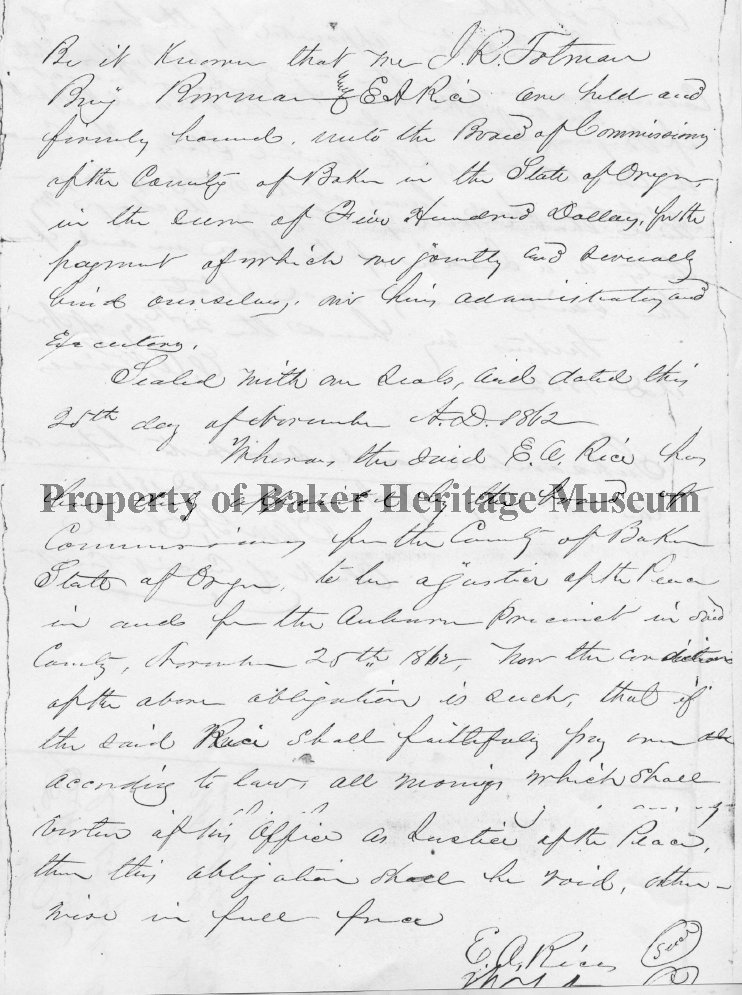 Be it Known that we J. R. Totman
Benj Bowman and E A Rice are held and
firmly bound, unto the Board of Commissioners
of the County of Baker in the State of Oregon,
in the sum of Five Hundred Dollars, for the
payment of which we jointly and severally
bind ourselves, our heirs administrators and
Executors.
Sealed with our seals, and dated this
25th day of November A.D. 1862
Whereas the said E. A. Rice has
been duly appointed by the Board of
Property of Baker Heritage Museum
Commissioners for the County of Baker
State of Oregon, to be a Justice of the Peace
in and for the Auburn Precinct in said
County, November 25th 1862, Now the condition
of the above obligation is such, that if
the said Rice shall faithfully pay over
according to law, all monies which shall
virtue of his Office as Justice of the Peace,
then this obligation shall be void, other-
wise in full force
E. A. Rice Seal